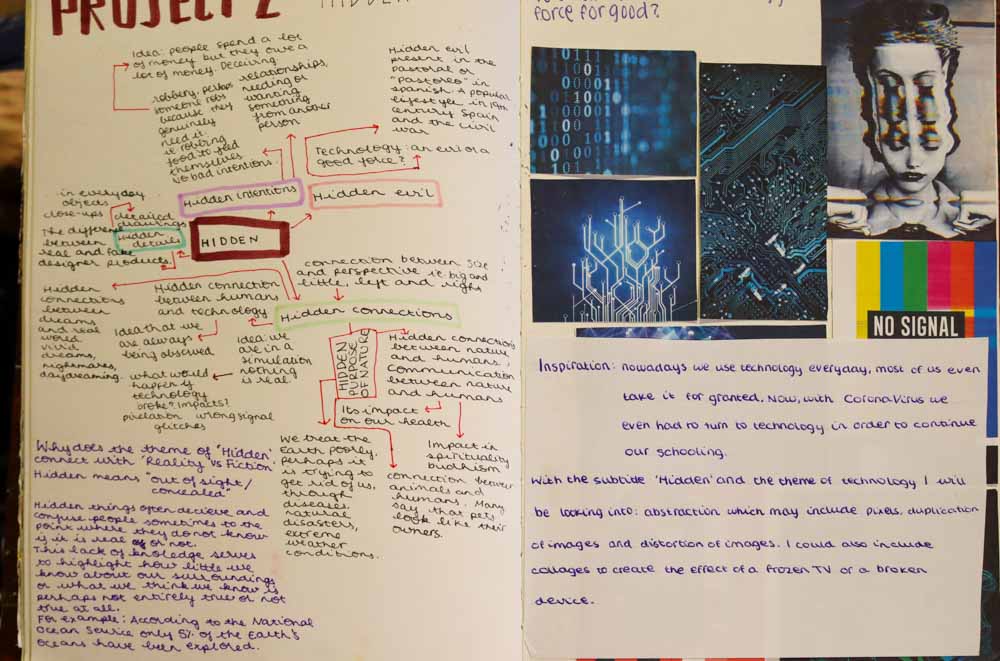 PROJECT 2 HIDDEN
Idea: people spend a lot
of money but they owe a
lot of money. Deceiving
robbery, perhaps
someone robs
because they
genuinely
need it.
ie robbing
food to feed
themselves
no bad intentions.
relationships,
needing or
wanting
something
from another
person
Hidden evil
present in the
pastoral or
"pastoreo" in
spanish. A popular
lifestyle in 19th
century Spain
and the civil
war
Technology: an evil or a
good force?
Hidden intentions
Hidden evil
in everyday
objects
close-ups
detailed
drawings
Hidden
details
The difference
between
real and fake
designer products
HIDDEN
connection between size
and perspective ie. big and
little, left and right
Hidden
connections
between
dreams
and real
world
vivid
dreams,
nightmares,
daydreaming.
Hidden connection
between humans
and technology
Hidden connections
Idea that we
are always
being observed
Idea: we
are in a
simulation
nothing
is real.
what would
happen if
technology
broke? Impacts?
pixelation wrong signal
glitches
HIDDEN
PURPOSE
OF NATURE
Hidden connections
between nature
and humans,
communication
between nature
and humans
Its impact
on our health
We treat the
Earth poorly.
perhaps it
is trying to
get rid of us,
through
diseases
natural
disasters,
extreme
weather
conditions.
Impact in
spirituality
budhism
connection between
animals and
humans. Many
say that pets
look like their
owners.
Why does the theme of 'Hidden'
connect with 'Reality vs Fiction'.
Hidden means "out of sight/
concealed"
Hidden things often decieve and
confuse people sometimes to the
point where they do not know
if it is real or not.
This lack of knoledge serves
to highlight how little we
know about our surroundings
or what we think we know is
perhaps not entirely true or not
true at all.
For example: According to the National
Ocean Source only 5% of the Earth's
oceans have been explored.
force for good?
NO SIGNAL
Inspiration: nowadays we use technology everyday, most of us even
take it for granted. Now, with CoronaVirus we
even had to turn to technology in order to continue
our schooling.
With the subtitle 'Hidden' and the theme of technology I will
be looking into: abstraction which may include pixels, duplication
of images and distortion of images. I could also include
collages to create the effect of a frozen TV or a broken
device.